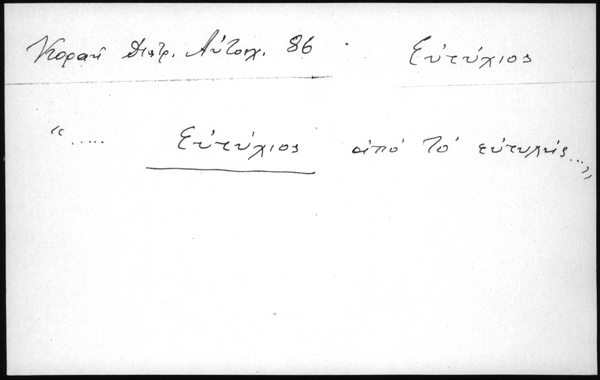 Κοραή Διατρ. Αὐτοσχ. 86 Εὐτύχιος
“..... Εὐτύχιος ἀπό τό εὐτυχής...„